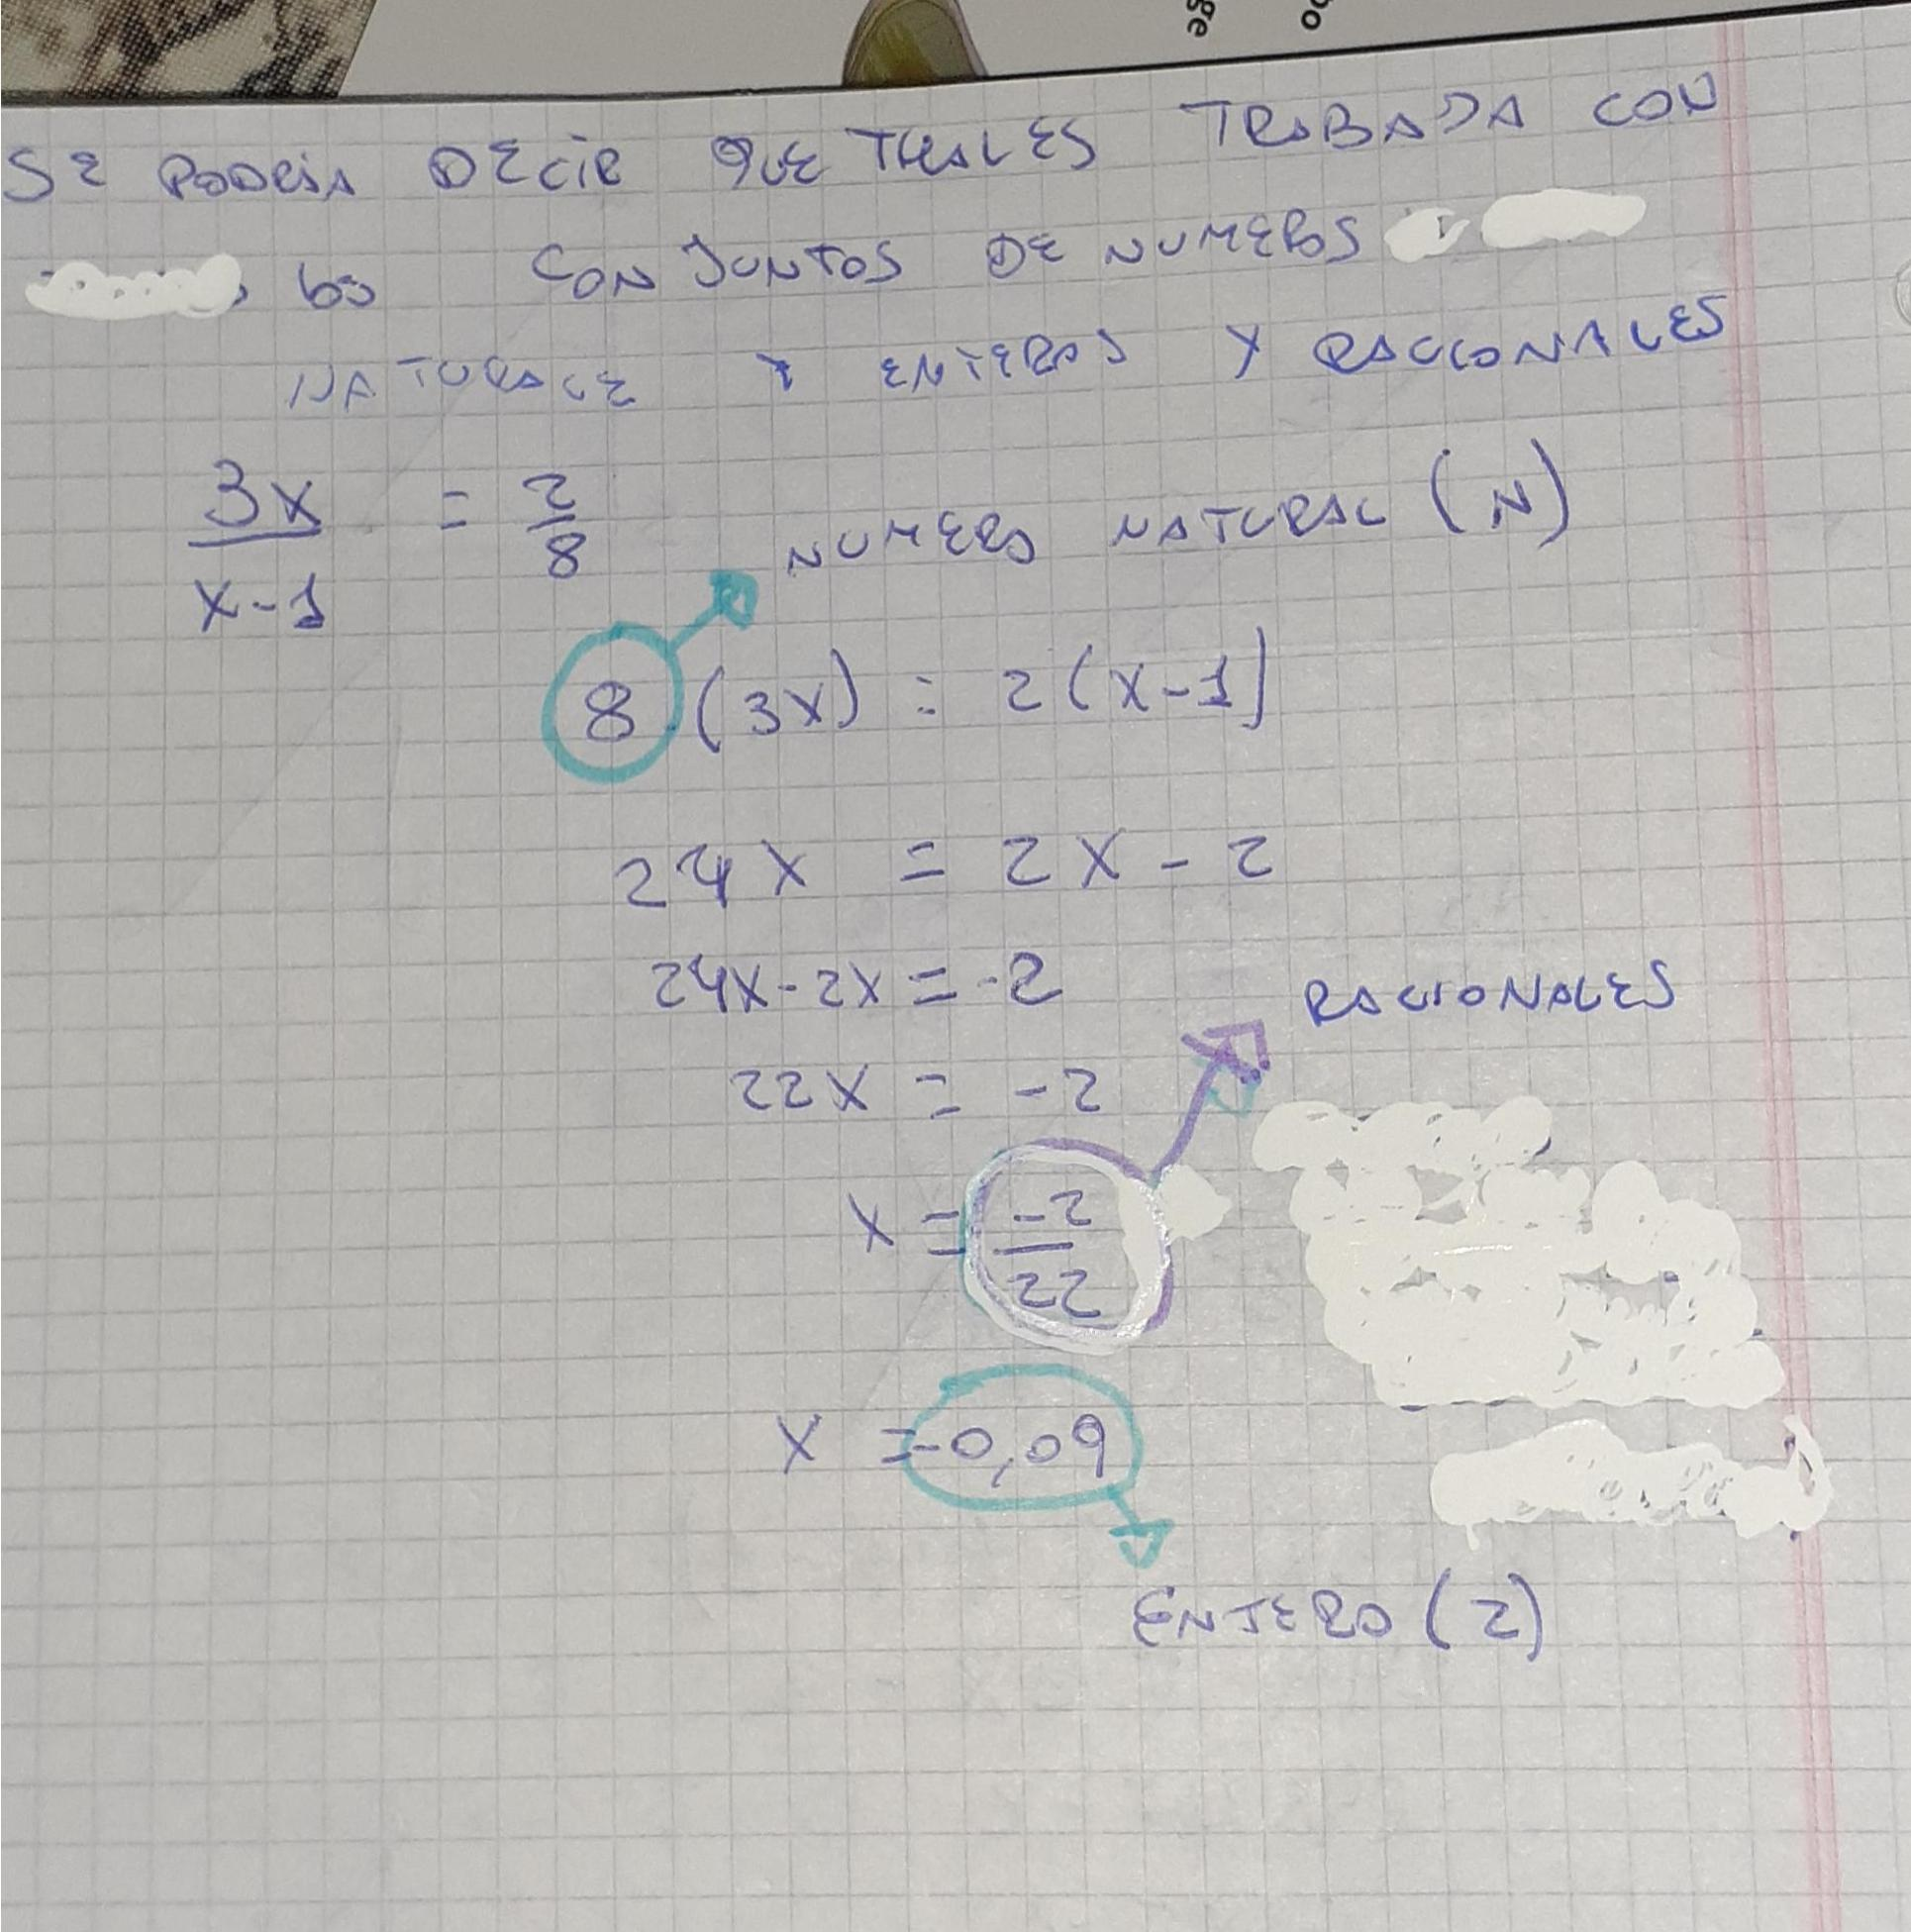 ge
SE PODRIA DECIR QUE THALES TRABAJA CON
los CONJUNTOS DE NUMEROS
NATURALE Y ENTEROS Y RACIONALES
3x / x-1 = 2/8
NUMERO NATURAL (N)
8 (3x) = 2(x-1)
24x = 2x - 2
24x - 2x = -2
RACIONALES
22x = -2
x = -2/22
x = -0,09
ENTERO (Z)